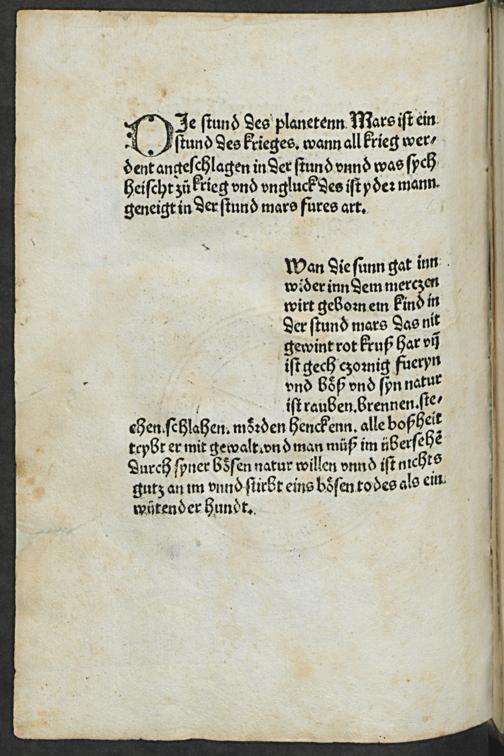 DJe stund des planetenn Mars ist ein
stund des krieges. wann all krieg wer⸗
dent angeschlagen in der stund vnnd was sych
heischt zů krieg vnd vngluck des ist yder mann
geneigt in der stund mars fures art.
Wan die sunn gat inn
wider inn dem merczen
wirt geborn ein kind in
der stund mars das nit
gewint rot kruß har vñ
ist gech czornig fueryn
vnd bóß vnd syn natur
ist rauben. brennen. ste⸗
chen. schlahen. mórden henckenn. alle boßheit
trybt er mit gewalt. vnd man můß im überseh~e
durch syner bósen natur willen vnnd ist nichts
gutz an im vnnd stirbt eins bósen todes als ein
wütender hundt.